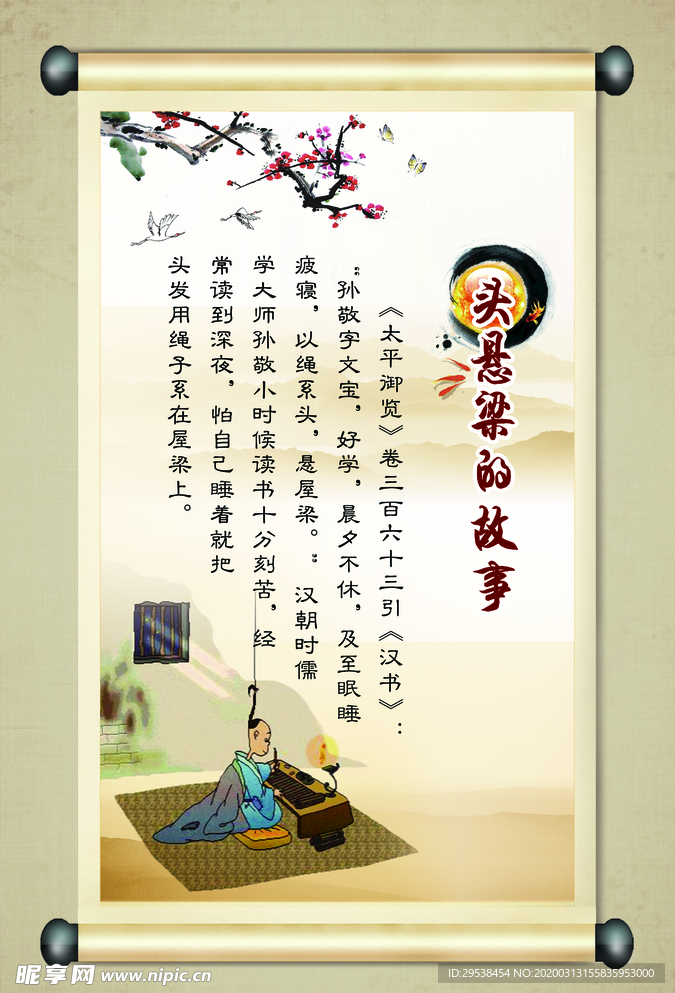 头悬梁的故事
《太平御览》卷三百六十三引《汉书》：
“孙敬字文宝，好学，晨夕不休，及至眠睡
疲寝，以绳系头，悬屋梁。”汉朝时儒
学大师孙敬小时候读书十分刻苦，经
常读到深夜，怕自己睡着就把
头发用绳子系在屋梁上。
昵享网 www.nipic.cn
ID:29538454 NO:20200313155835953000